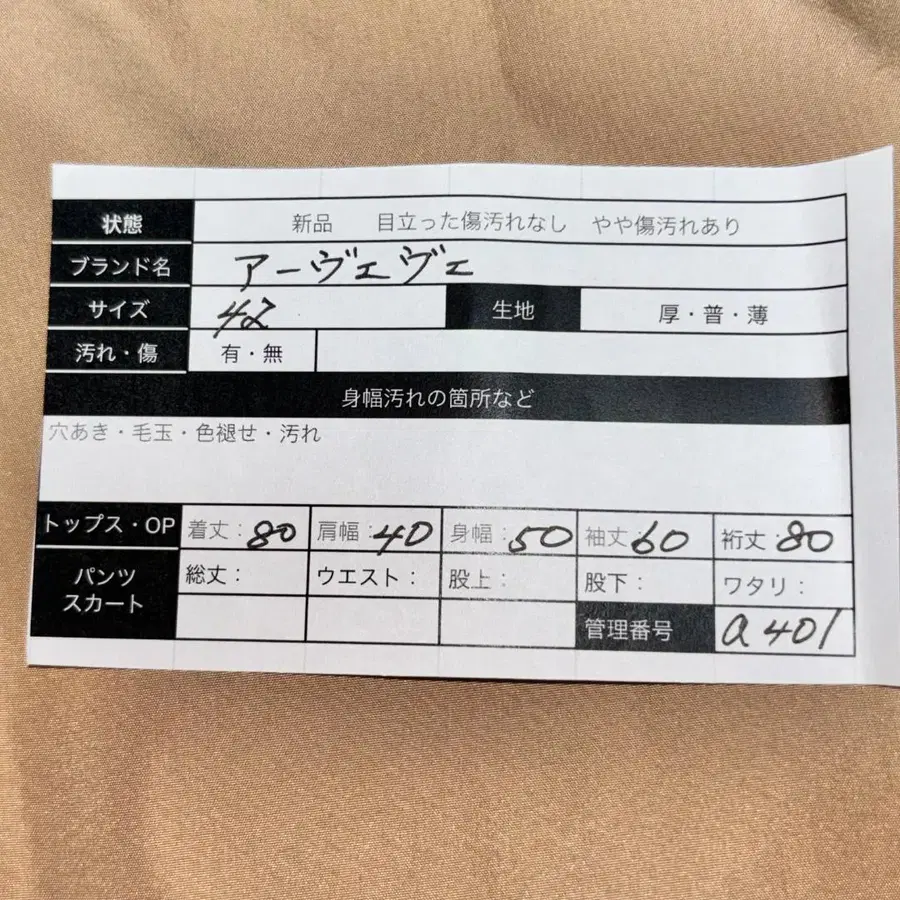 状態 新品 目立った傷汚れなし やや傷汚れあり
ブランド名 アーヴェヴェ
サイズ 42 生地 厚・普・薄
汚れ・傷 有・無
身幅汚れの箇所など
穴あき・毛玉・色褪せ・汚れ
トップス・OP 着丈：80 肩幅：40 身幅：50 袖丈60 裄丈：80
パンツ スカート 総丈： ウエスト： 股上： 股下： ワタリ：
管理番号 a401